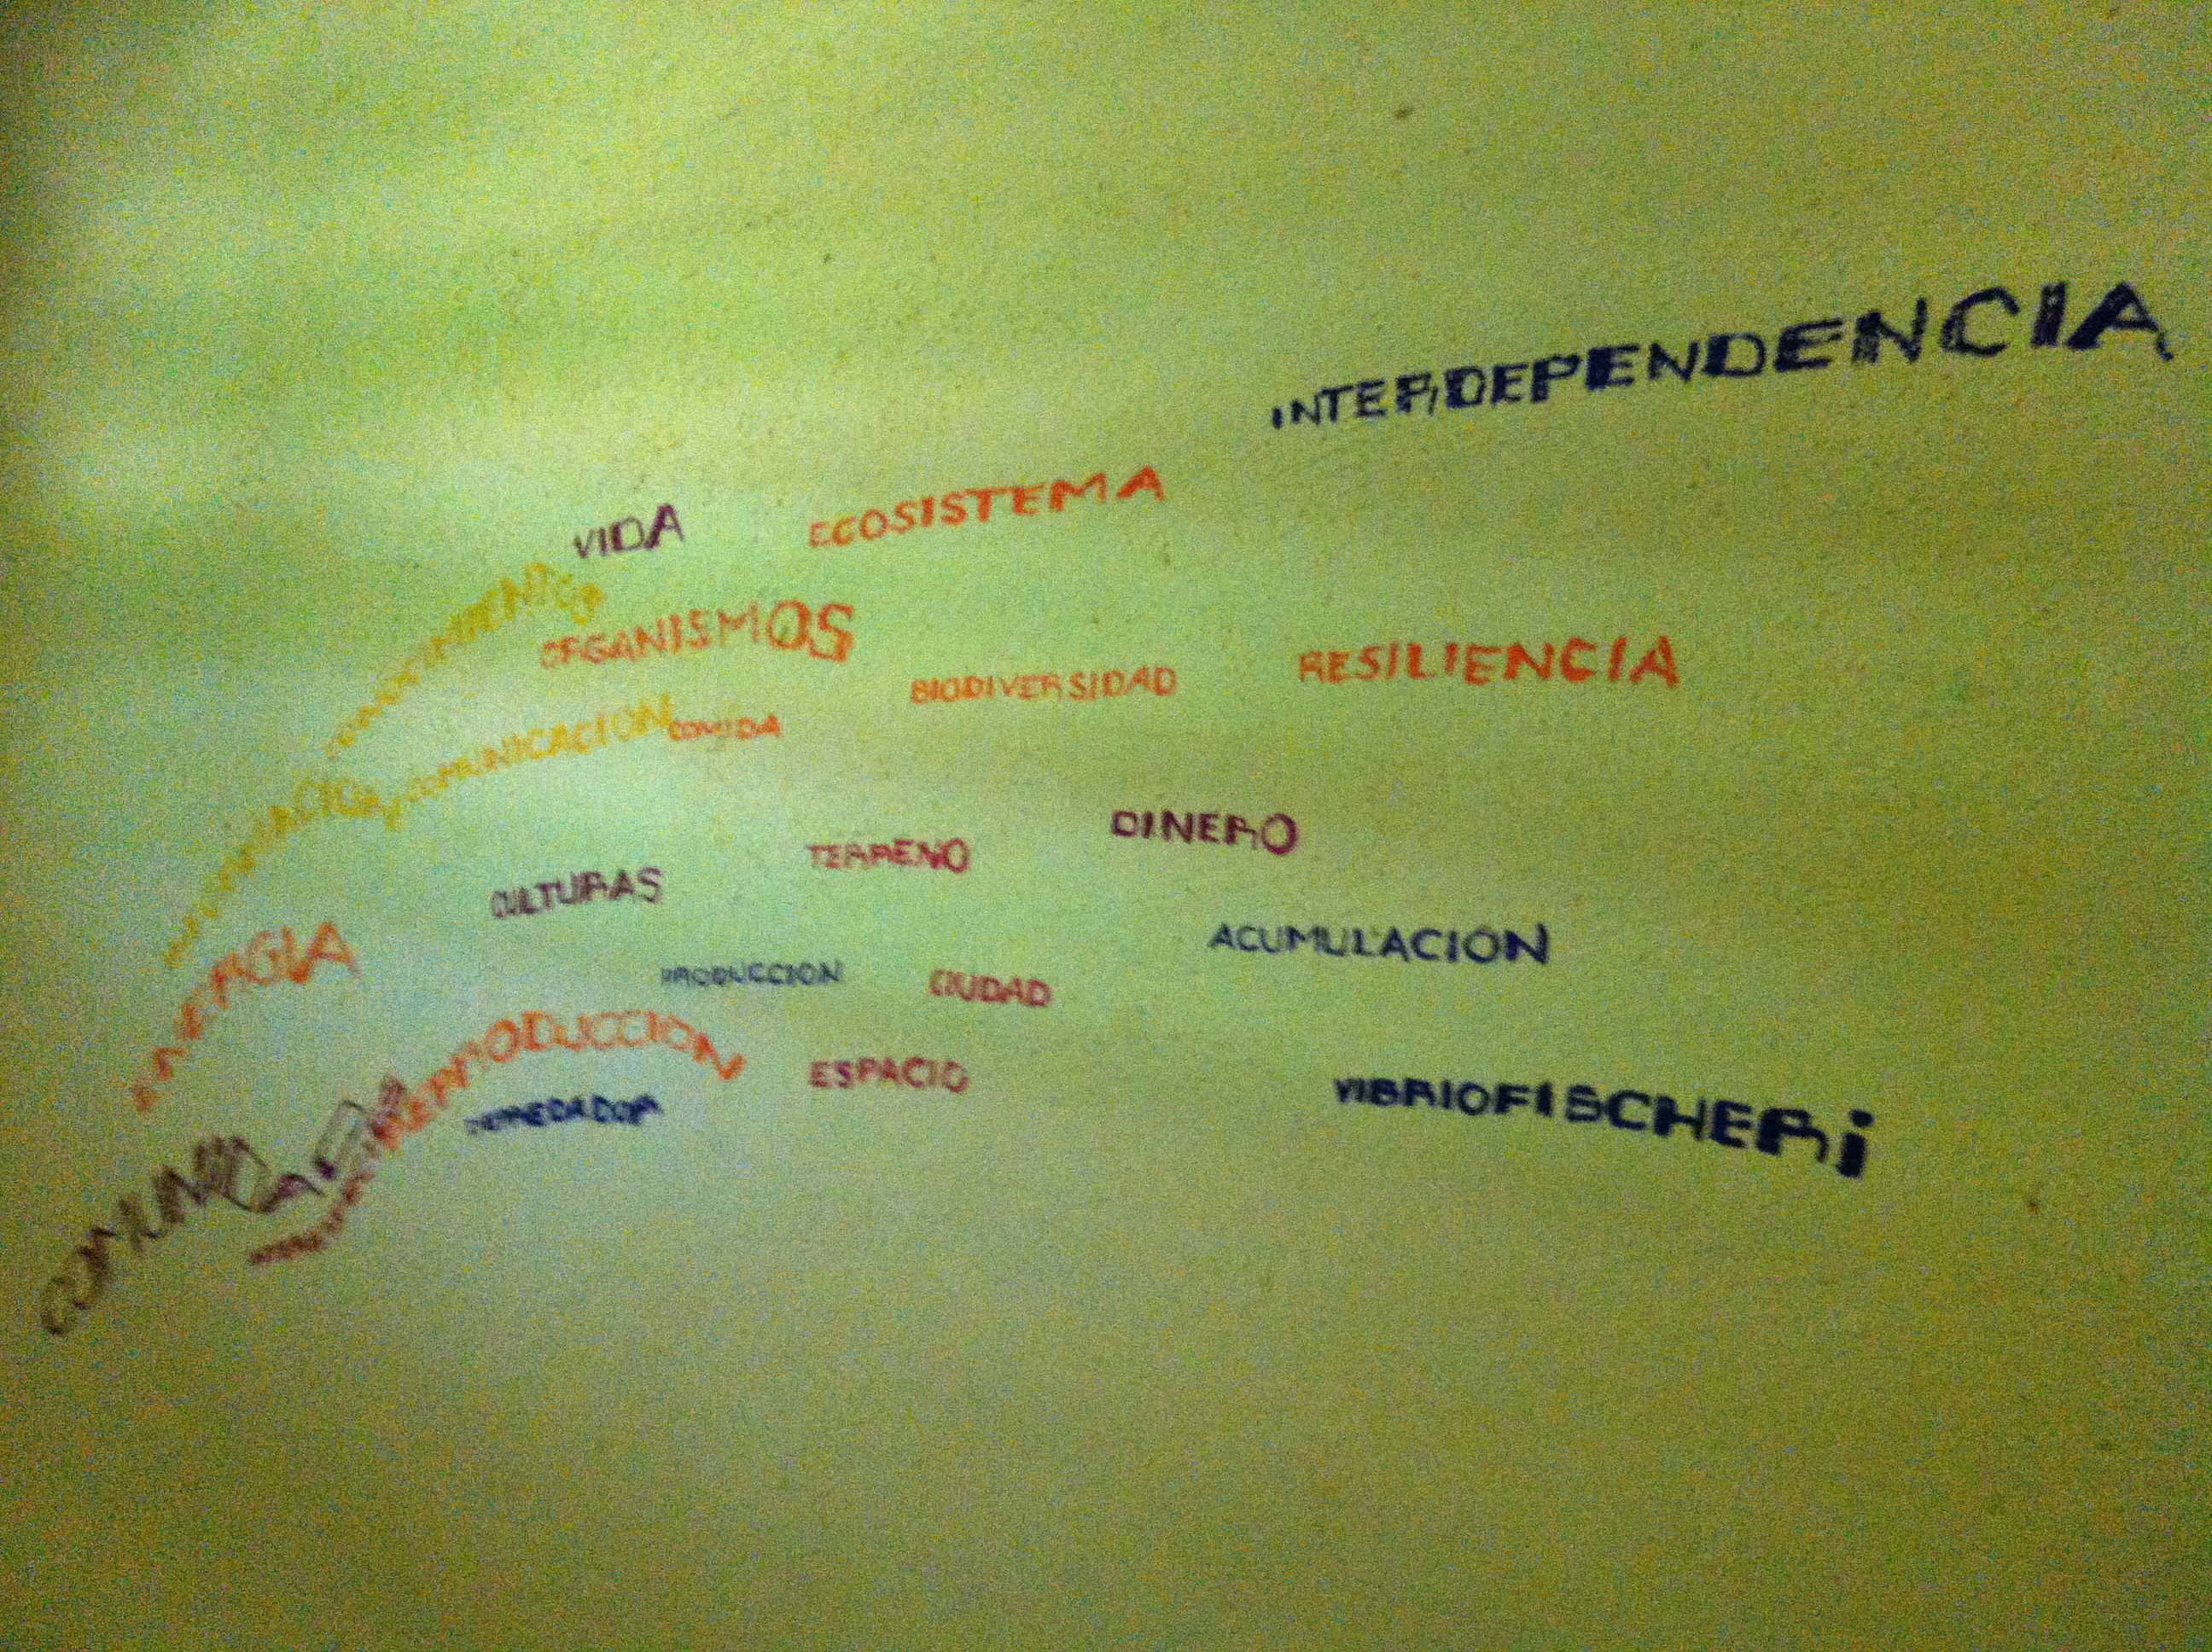 INTERDEPENDENCIA
VIDA
ECOSISTEMA
CONOCIMIENTO
ORGANISMOS
BIODIVERSIDAD
RESILIENCIA
COMUNICACION
COMIDA
DINERO
TERRENO
CULTURAS
ENERGIA
ACUMULACION
PRODUCCION
CIUDAD
REPRODUCCION
ESPACIO
DEPREDADOR
VIBRIOFISCHERi
COMUNIDADES